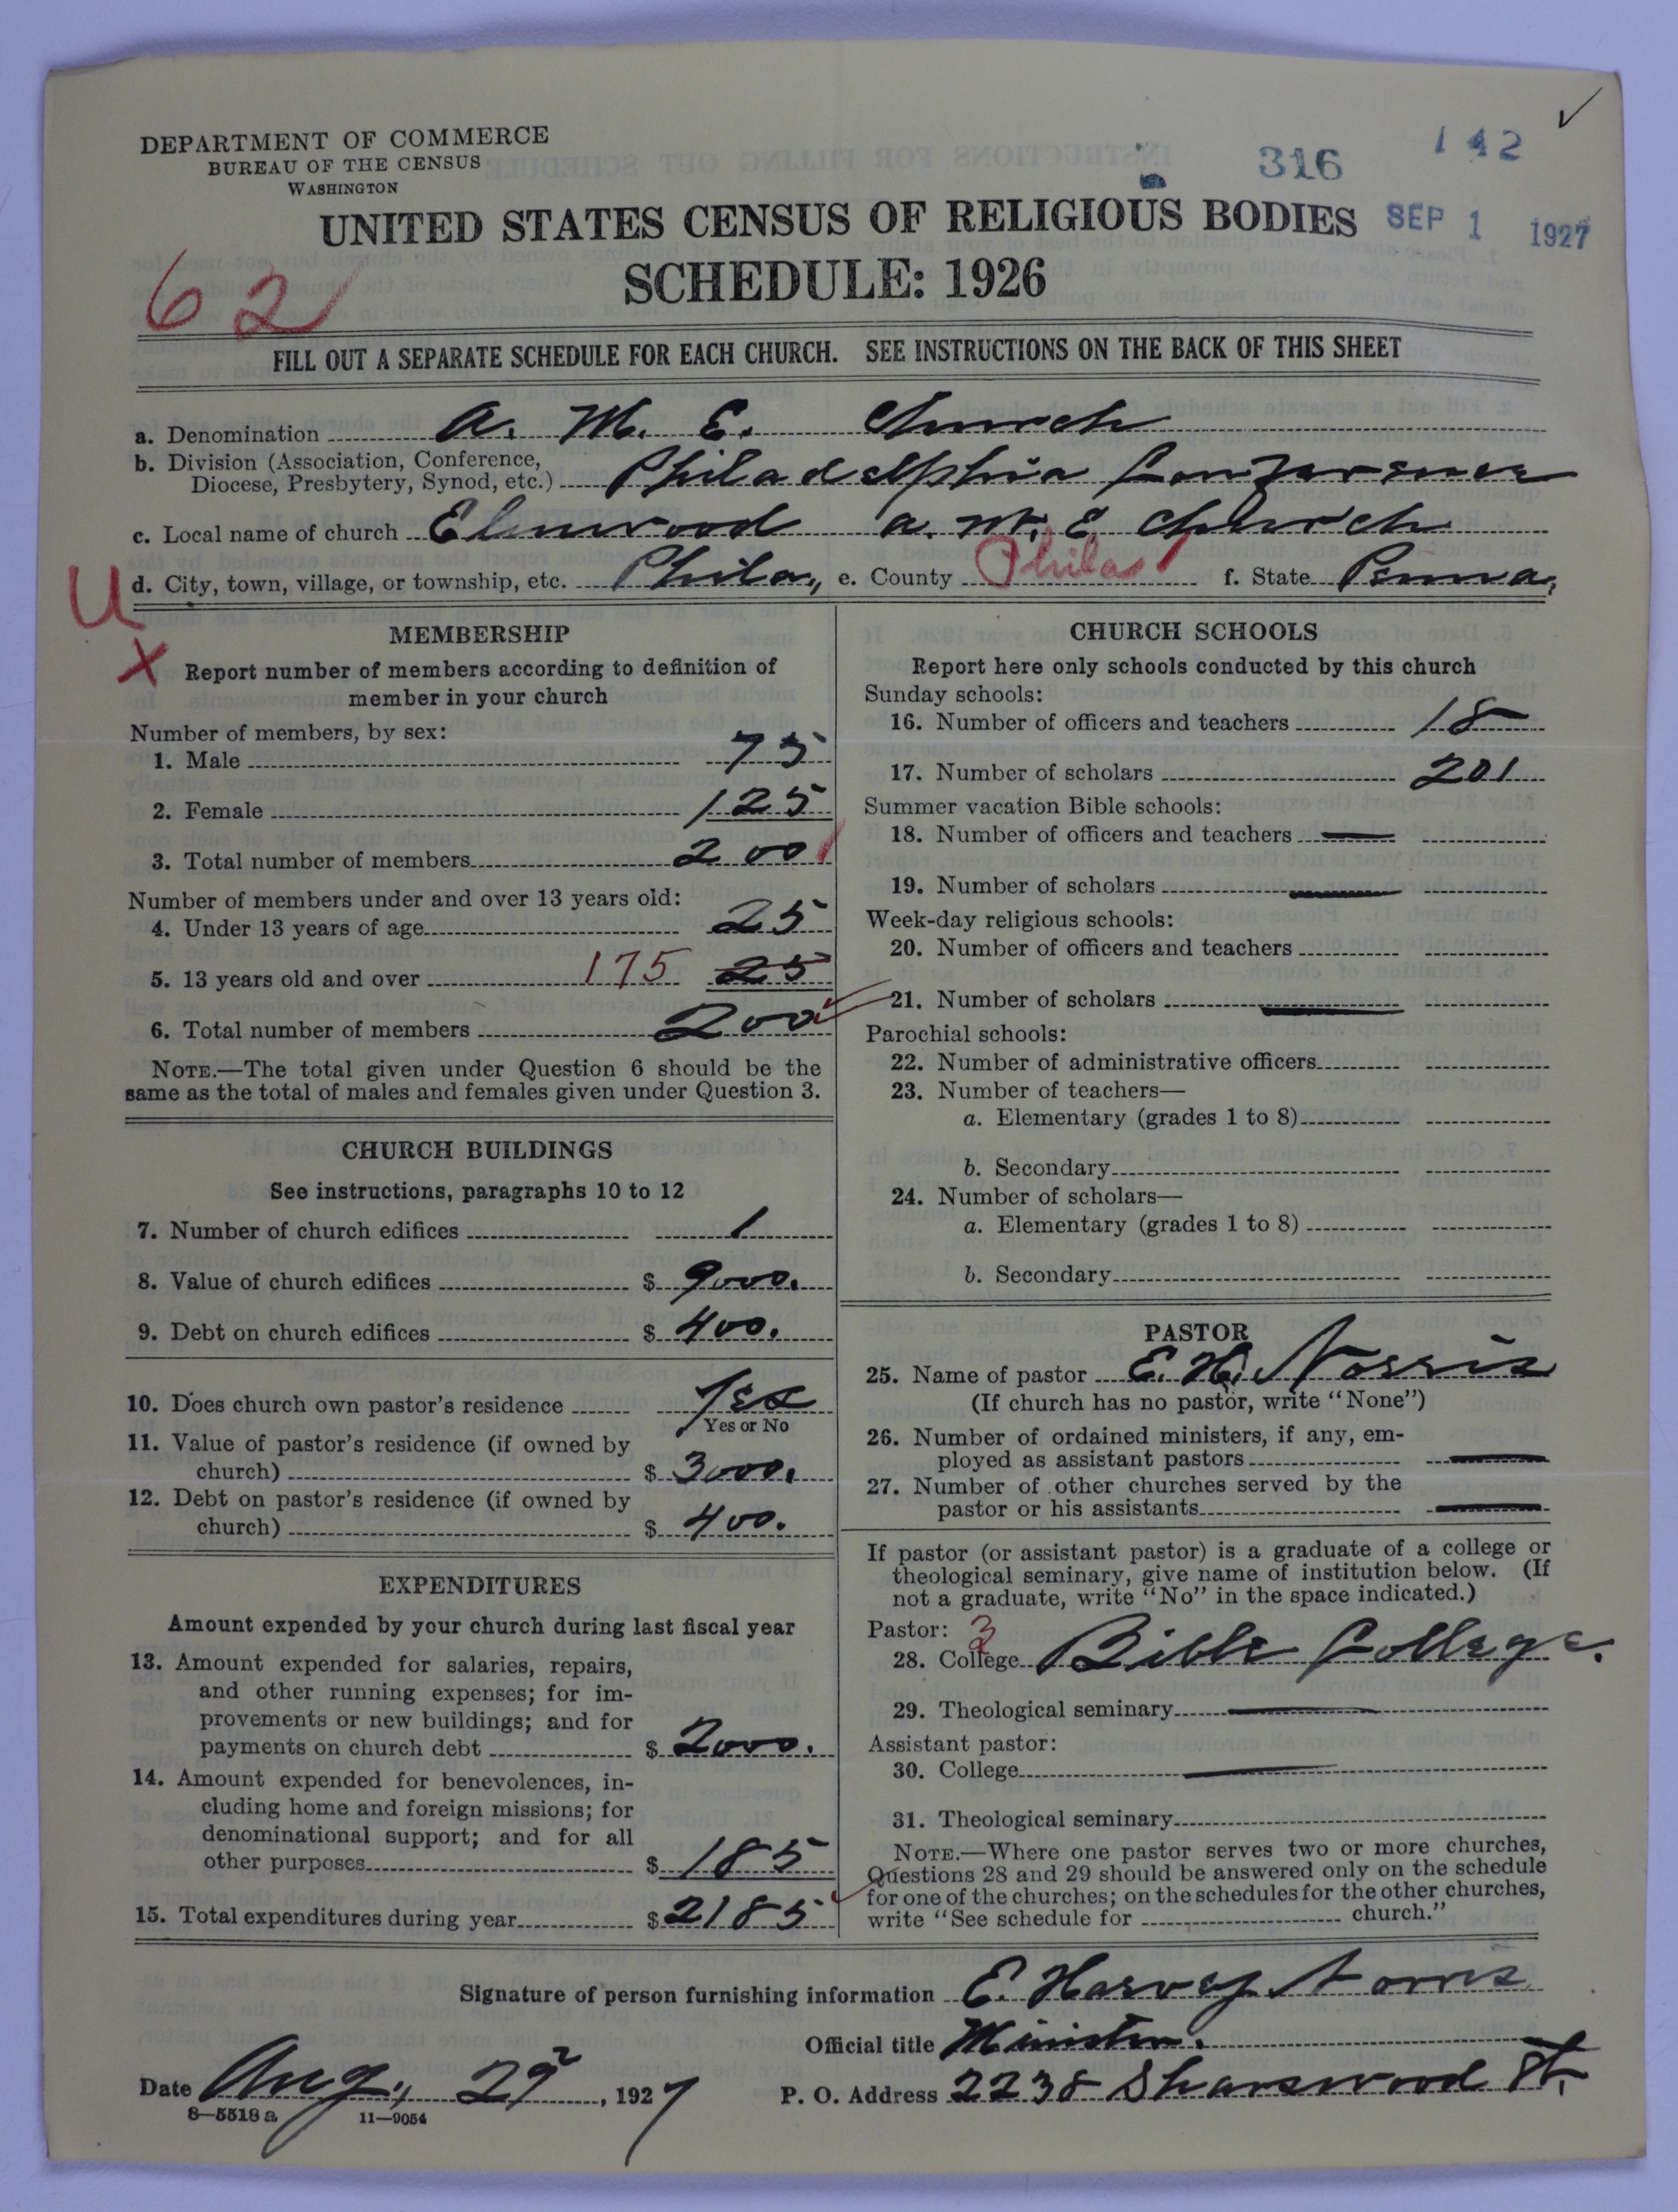 DEPARTMENT OF COMMERCE
BUREAU OF THE CENSUS
WASHINGTON
316
142
UNITED STATES CENSUS OF RELIGIOUS BODIES
SEP 1 1927
SCHEDULE: 1926
62
FILL OUT A SEPARATE SCHEDULE FOR EACH CHURCH. SEE INSTRUCTIONS ON THE BACK OF THIS SHEET
a. Denomination A. M. E. Church
b. Division (Association, Conference,
Diocese, Presbytery, Synod, etc.) Philadelphia Conference
c. Local name of church Elmwood A. M. E. Church
U
d. City, town, village, or township, etc. Phila., e. County Phila f. State Penna.
MEMBERSHIP
X
Report number of members according to definition of
member in your church
Number of members, by sex:
1. Male 75
2. Female 125
3. Total number of members 200
Number of members under and over 13 years old:
4. Under 13 years of age 25
5. 13 years old and over 175 25
6. Total number of members 200
NOTE.—The total given under Question 6 should be the
same as the total of males and females given under Question 3.
CHURCH BUILDINGS
See instructions, paragraphs 10 to 12
7. Number of church edifices 1
8. Value of church edifices $ 9000.
9. Debt on church edifices $ 400.
10. Does church own pastor's residence Yes
Yes or No
11. Value of pastor's residence (if owned by
church) $ 3000.
12. Debt on pastor's residence (if owned by
church) $ 400.
EXPENDITURES
Amount expended by your church during last fiscal year
13. Amount expended for salaries, repairs,
and other running expenses; for im-
provements or new buildings; and for
payments on church debt $ 2000.
14. Amount expended for benevolences, in-
cluding home and foreign missions; for
denominational support; and for all
other purposes $ 185
15. Total expenditures during year $ 2185
CHURCH SCHOOLS
Report here only schools conducted by this church
Sunday schools:
16. Number of officers and teachers 18
17. Number of scholars 201
Summer vacation Bible schools:
18. Number of officers and teachers
19. Number of scholars
Week-day religious schools:
20. Number of officers and teachers
21. Number of scholars
Parochial schools:
22. Number of administrative officers
23. Number of teachers—
a. Elementary (grades 1 to 8)
b. Secondary
24. Number of scholars—
a. Elementary (grades 1 to 8)
b. Secondary
PASTOR
25. Name of pastor E. H. Norris
(If church has no pastor, write "None")
26. Number of ordained ministers, if any, em-
ployed as assistant pastors
27. Number of other churches served by the
pastor or his assistants
If pastor (or assistant pastor) is a graduate of a college or
theological seminary, give name of institution below. (If
not a graduate, write "No" in the space indicated.)
Pastor: 3
28. College Bible College.
29. Theological seminary
Assistant pastor:
30. College
31. Theological seminary
NOTE.—Where one pastor serves two or more churches,
Questions 28 and 29 should be answered only on the schedule
for one of the churches; on the schedules for the other churches,
write "See schedule for church."
Signature of person furnishing information E. Harvey Norris
Official title Minister.
Date Aug., 29, 1927 P. O. Address 2238 Sharswood St.
8—5518 a 11—9054